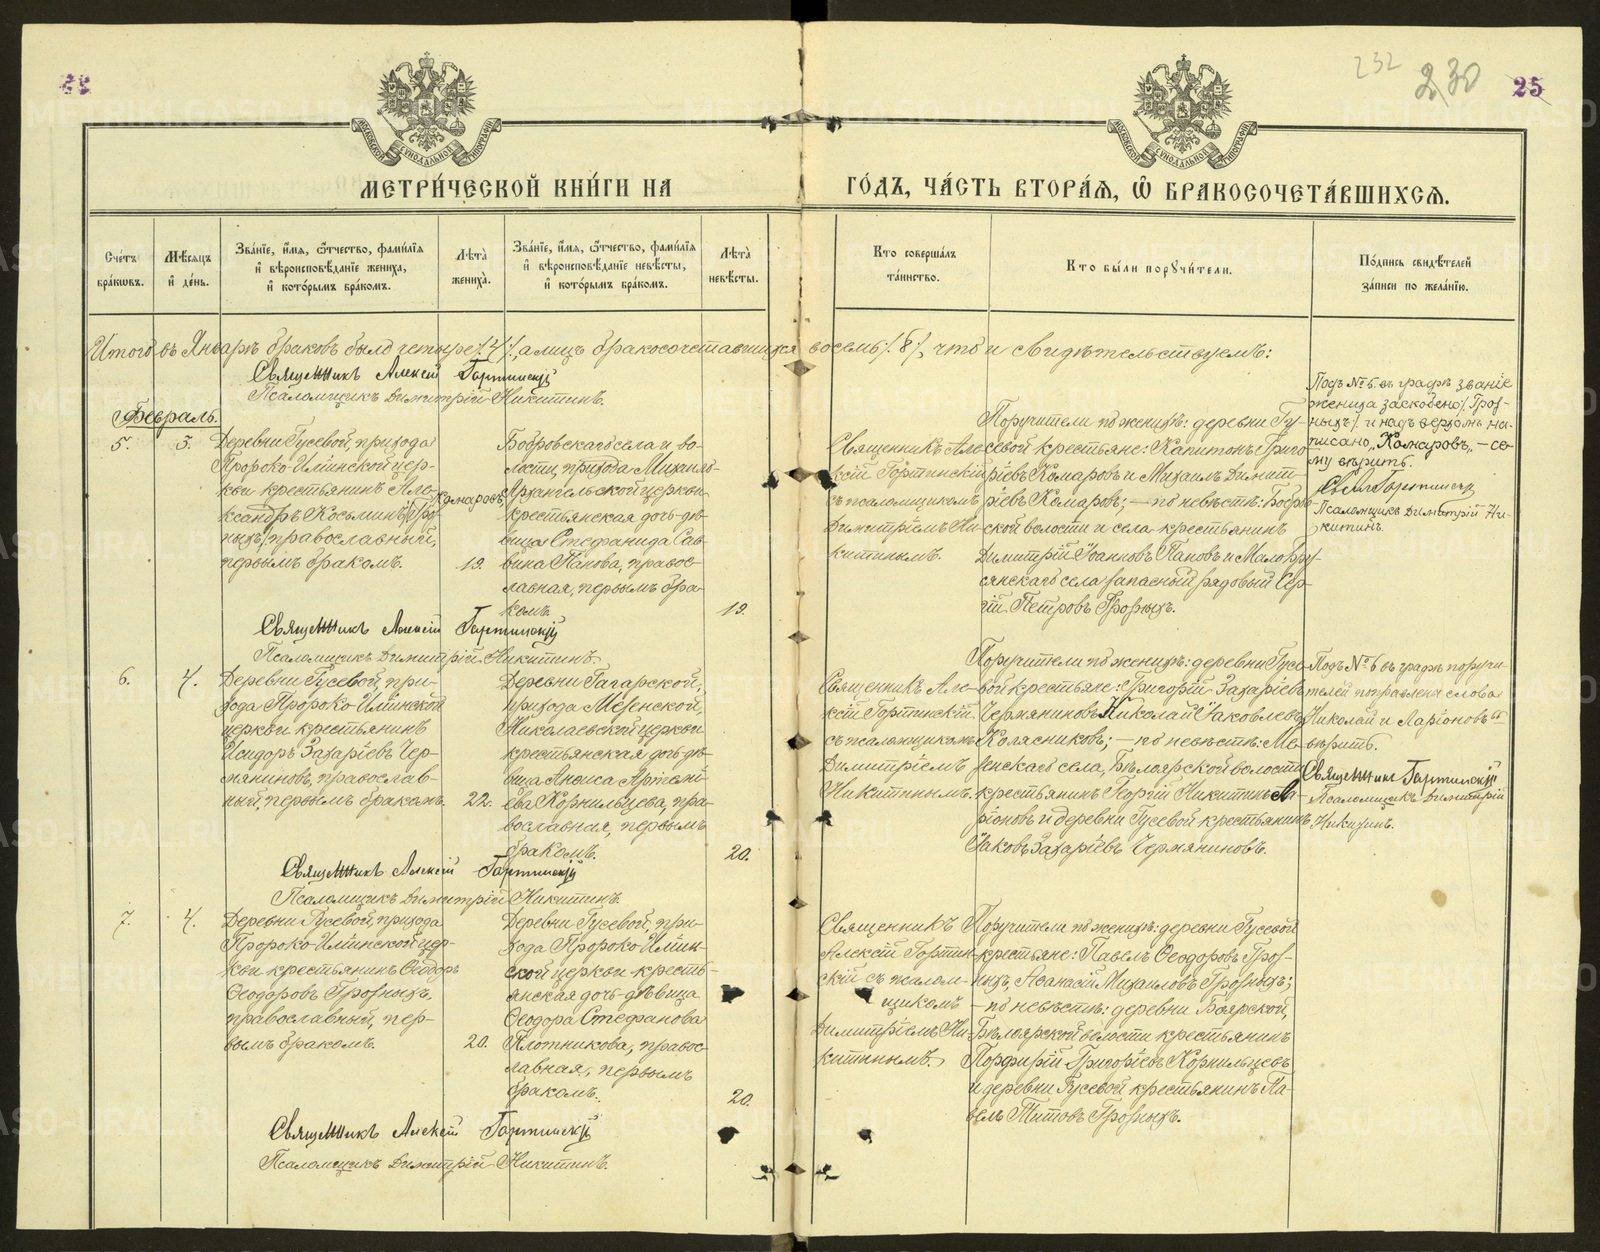 232
230
25
МЕТРИ́ЧЕСКОЙ КНИ́ГИ НА ГО́ДЪ, ЧА́СТЬ ВТОРА́Я, Ѡ БРАКОСОЧЕТА́ВШИХСЯ.
Сче́тъ
бра́кѡвъ.
Мѣ́сяцъ
и̂ де́нь.
Зва́нїе, и́мя, ѻ́тчество, фами́лїя
и̂ вѣроисповѣ́данїе жениха̀,
и̂ кото́рымъ бра́комъ.
Лѣ́та̀
жениха̀.
Зва́нїе, и́мя, ѻ́тчество, фами́лїя
и̂ вѣроисповѣ́данїе невѣ́сты,
и̂ кото́рымъ бра́комъ.
Лѣ́та̀
невѣ́сты.
Кто соверша́лъ
та́инство.
Кто бы́ли порꙋчи́тели.
По́дпись свидѣ́телей
за́писи по жела́нїю.
Итого въ Январѣ браковъ было четыре /.4./, а лицъ бракосочетавшихся восемь /.8./, что и свидѣтельствуемъ:
Священникъ Алексій Гортинскій
Псаломщикъ Димитрій Никитинъ.
Февраль.
5.
3.
Деревни Гусевой, прихода
Пророко-Илiинской цер-
кви крестьянинъ Але-
ксандръ Косьминъ /Гроз-
ныхъ/ православный,
первымъ бракомъ.
„Комаровъ„
19.
Бобровскаго села и во-
лости, прихода Михаило-
Архангельской церкви
крестьянская дочь-дѣ-
вица Стефанида Сав-
вина Панова, правос-
лавная, первымъ бра-
комъ.
19.
Священникъ Але-
ксій Гортинскій
съ псаломщикомъ
Димитріемъ Ни-
китинымъ.
Поручители по женихѣ: деревни Гу-
севой крестьяне: Капитонъ Григо-
ріевъ Комаровъ и Михаилъ Димит-
ріевъ Комаровъ; — по невѣстѣ: Бобров-
ской волости и села крестьянин
Димитрій Іоанновъ Пановъ и Мало-Бру-
сянскаго села запасный рядовый Сер-
гій Петровъ Грозныхъ.
Подъ № 5. въ графѣ званіе
жениха заскоблено /. Гроз-
ныхъ /. и надъ верхомъ на-
писано „Комаровъ„ — се-
му вѣрить.
Свящ. Гортинскій
Псаломщикъ Димитрій Ни-
китинъ.
Священникъ Алексій Гортинскій
Псаломщикъ Димитрій Никитинъ.
6.
4.
Деревни Гусевой, при-
хода Пророко-Илiинской
церкви крестьянинъ
Исидоръ Захаріевъ Чер-
мяниновъ, православ-
ный, первымъ бракомъ.
22.
Деревни Гагарской,
прихода Мезенской,
Николаевской церкви
крестьянская дочь-дѣ-
вица Аниса Артемі-
ева Корнильцева, пра-
вославная, первымъ
бракомъ.
20.
Священникъ Але-
ксій Гортинскій.
съ псаломщикомъ
Димитріемъ
Никитинымъ.
Поручители по женихѣ: деревни Гусе-
вой крестьяне: Григорій Захаріевъ
Чермяниновъ Николай Іаковлевъ
Колясниковъ; — по невѣстѣ: Ме-
зенскаго села, Бѣлоярской волости
крестьянинъ Георгій Никитинъ Ла-
ріоновъ и деревни Гусевой крестьянинъ
Іаковъ Захаріевъ Чермяниновъ.
Подъ № 6 въ графѣ поручи-
телей поправлены слова
Николай и Ларіоновъ
вѣрить.
Священникъ Гортинскій
Псаломщикъ Димитрій
Никитинъ.
Священникъ Алексій Гортинскій
Псаломщикъ Димитрій Никитинъ.
7.
4.
Деревни Гусевой, прихода
Пророко-Илiинской цер-
кви крестьянинъ Ѳеодоръ
Ѳеодоровъ Грозныхъ,
православный, пер-
вымъ бракомъ.
20.
Деревни Гусевой, при-
хода Пророко-Илiин-
ской церкви кресть-
янская дочь-дѣвица
Ѳеодора Стефанова
Плотникова, правос-
лавная, первымъ
бракомъ.
20.
Священникъ
Алексій Гортин-
скій съ псалом-
щикомъ
Димитріемъ Ни-
китинымъ.
Поручители по женихѣ: деревни Гусевой
крестьяне: Павелъ Ѳеодоровъ Гроз-
ныхъ, Аѳанасій Михаиловъ Грозныхъ;
— по невѣстѣ: деревни Боярской,
Бѣлоярской волости крестьянинъ
Порфирій Григоріевъ Корнильцевъ
и деревни Гусевой крестьянинъ Па-
велъ Титовъ Грозныхъ.
Священникъ Алексій Гортинскій
Псаломщикъ Димитрій Никитинъ.